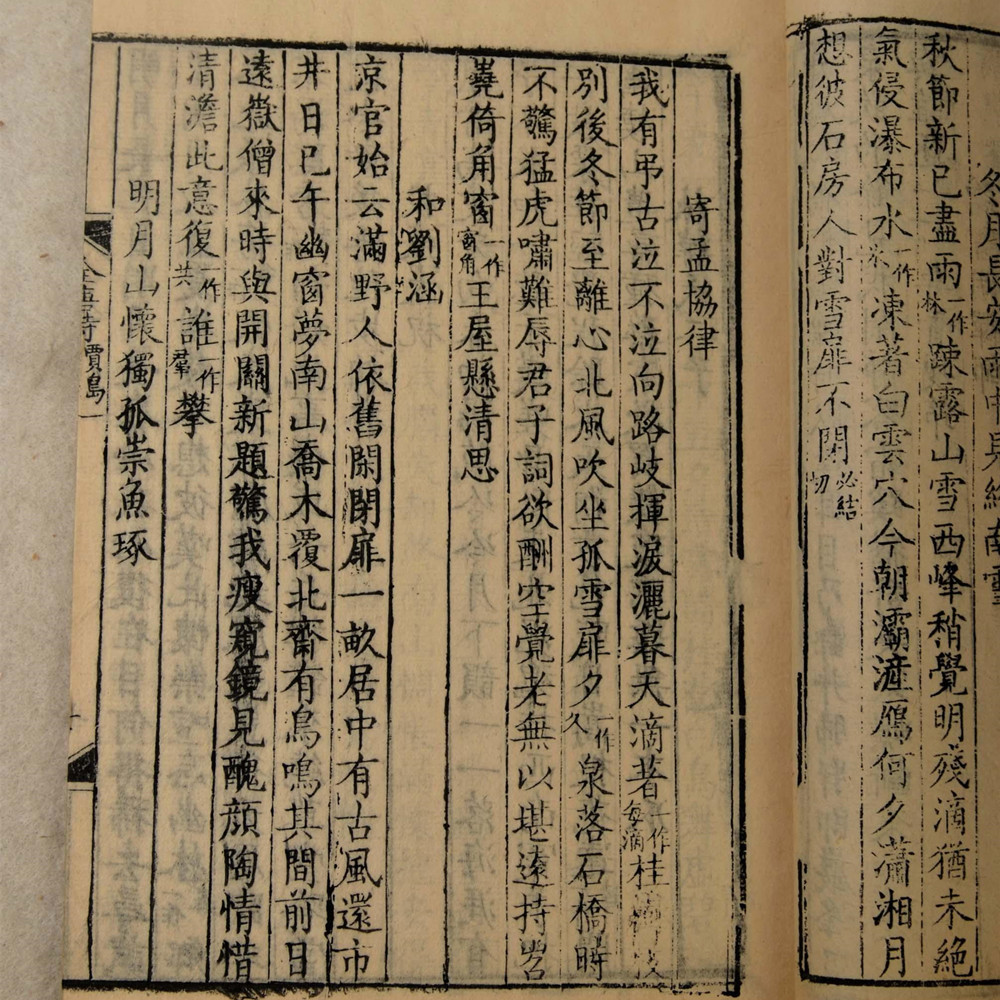 冬月長安雨中見終南雪
秋節新已盡雨一作林疎露山雪西峰稍覺明殘滴猶未絕
氣侵瀑布水一作冰凍著白雲穴今朝灞滻鴈何夕瀟湘月
想彼石房人對雪扉不閉必結切
寄孟協律
我有弔古泣不泣向路岐揮淚灑暮天滴著一作每滴桂
別後冬節至離心北風吹坐孤雪扉夕一作久泉落石橋時
不驚猛虎嘯難辱君子詞欲酬空覺老無以堪遠持岧
嶤倚角窗一作窗角王屋懸清思
和劉涵
京官始云滿野人依舊閑閉扉一畝居中有古風還市
井日已午幽窗夢南山喬木覆北齋有鳥鳴其間前日
遠嶽僧來時與開關新題驚我瘦窺鏡見醜顏陶情惜
清澹此意復一作共誰一作羣攀
明月山懷獨孤崇魚琢
賈島一